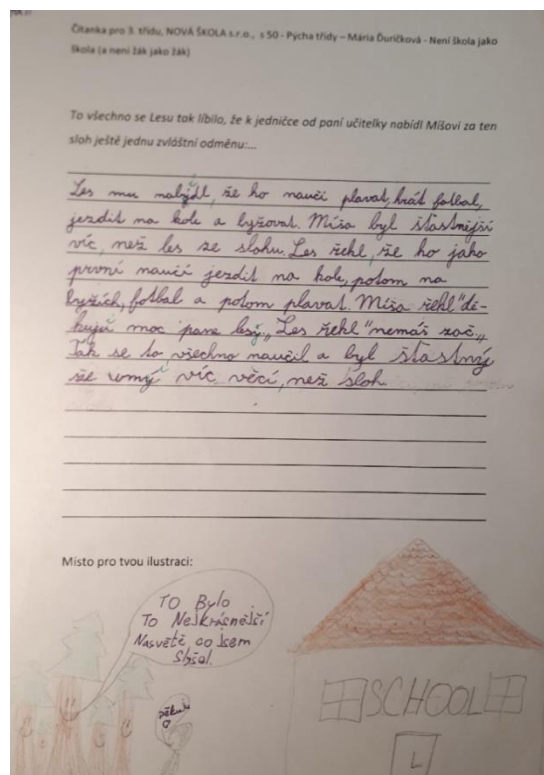 Čítanka pro 3. třídu, NOVÁ ŠKOLA s.r.o., s 50 - Pýcha třídy – Mária Ďuríčková - Není škola jako
škola (a není žák jako žák)
To všechno se Lesu tak líbilo, že k jedničce od paní učitelky nabídl Míšovi za ten
sloh ještě jednu zvláštní odměnu:...
Les mu nabýdl, že ho naučí plavat, hrát fotbal,
jezdit na kole a lyžovat. Míša byl šťastnější
víc, než les ze slohu. Les řekl, že ho jako
první naučí jezdit na kole, potom na
lyžích, fotbal a potom plavat. Míša řekl "dě-
kuju moc pane lesy„ Les řekl "nemáš zač„
Tak se to všechno naučil a byl šťastný
že umý víc věcí, než sloh.
Místo pro tvou ilustraci:
TO Bylo
To Nejkrásnější
Nasvětě co jsem
Slyšel.
Děkuji
SCHOOL